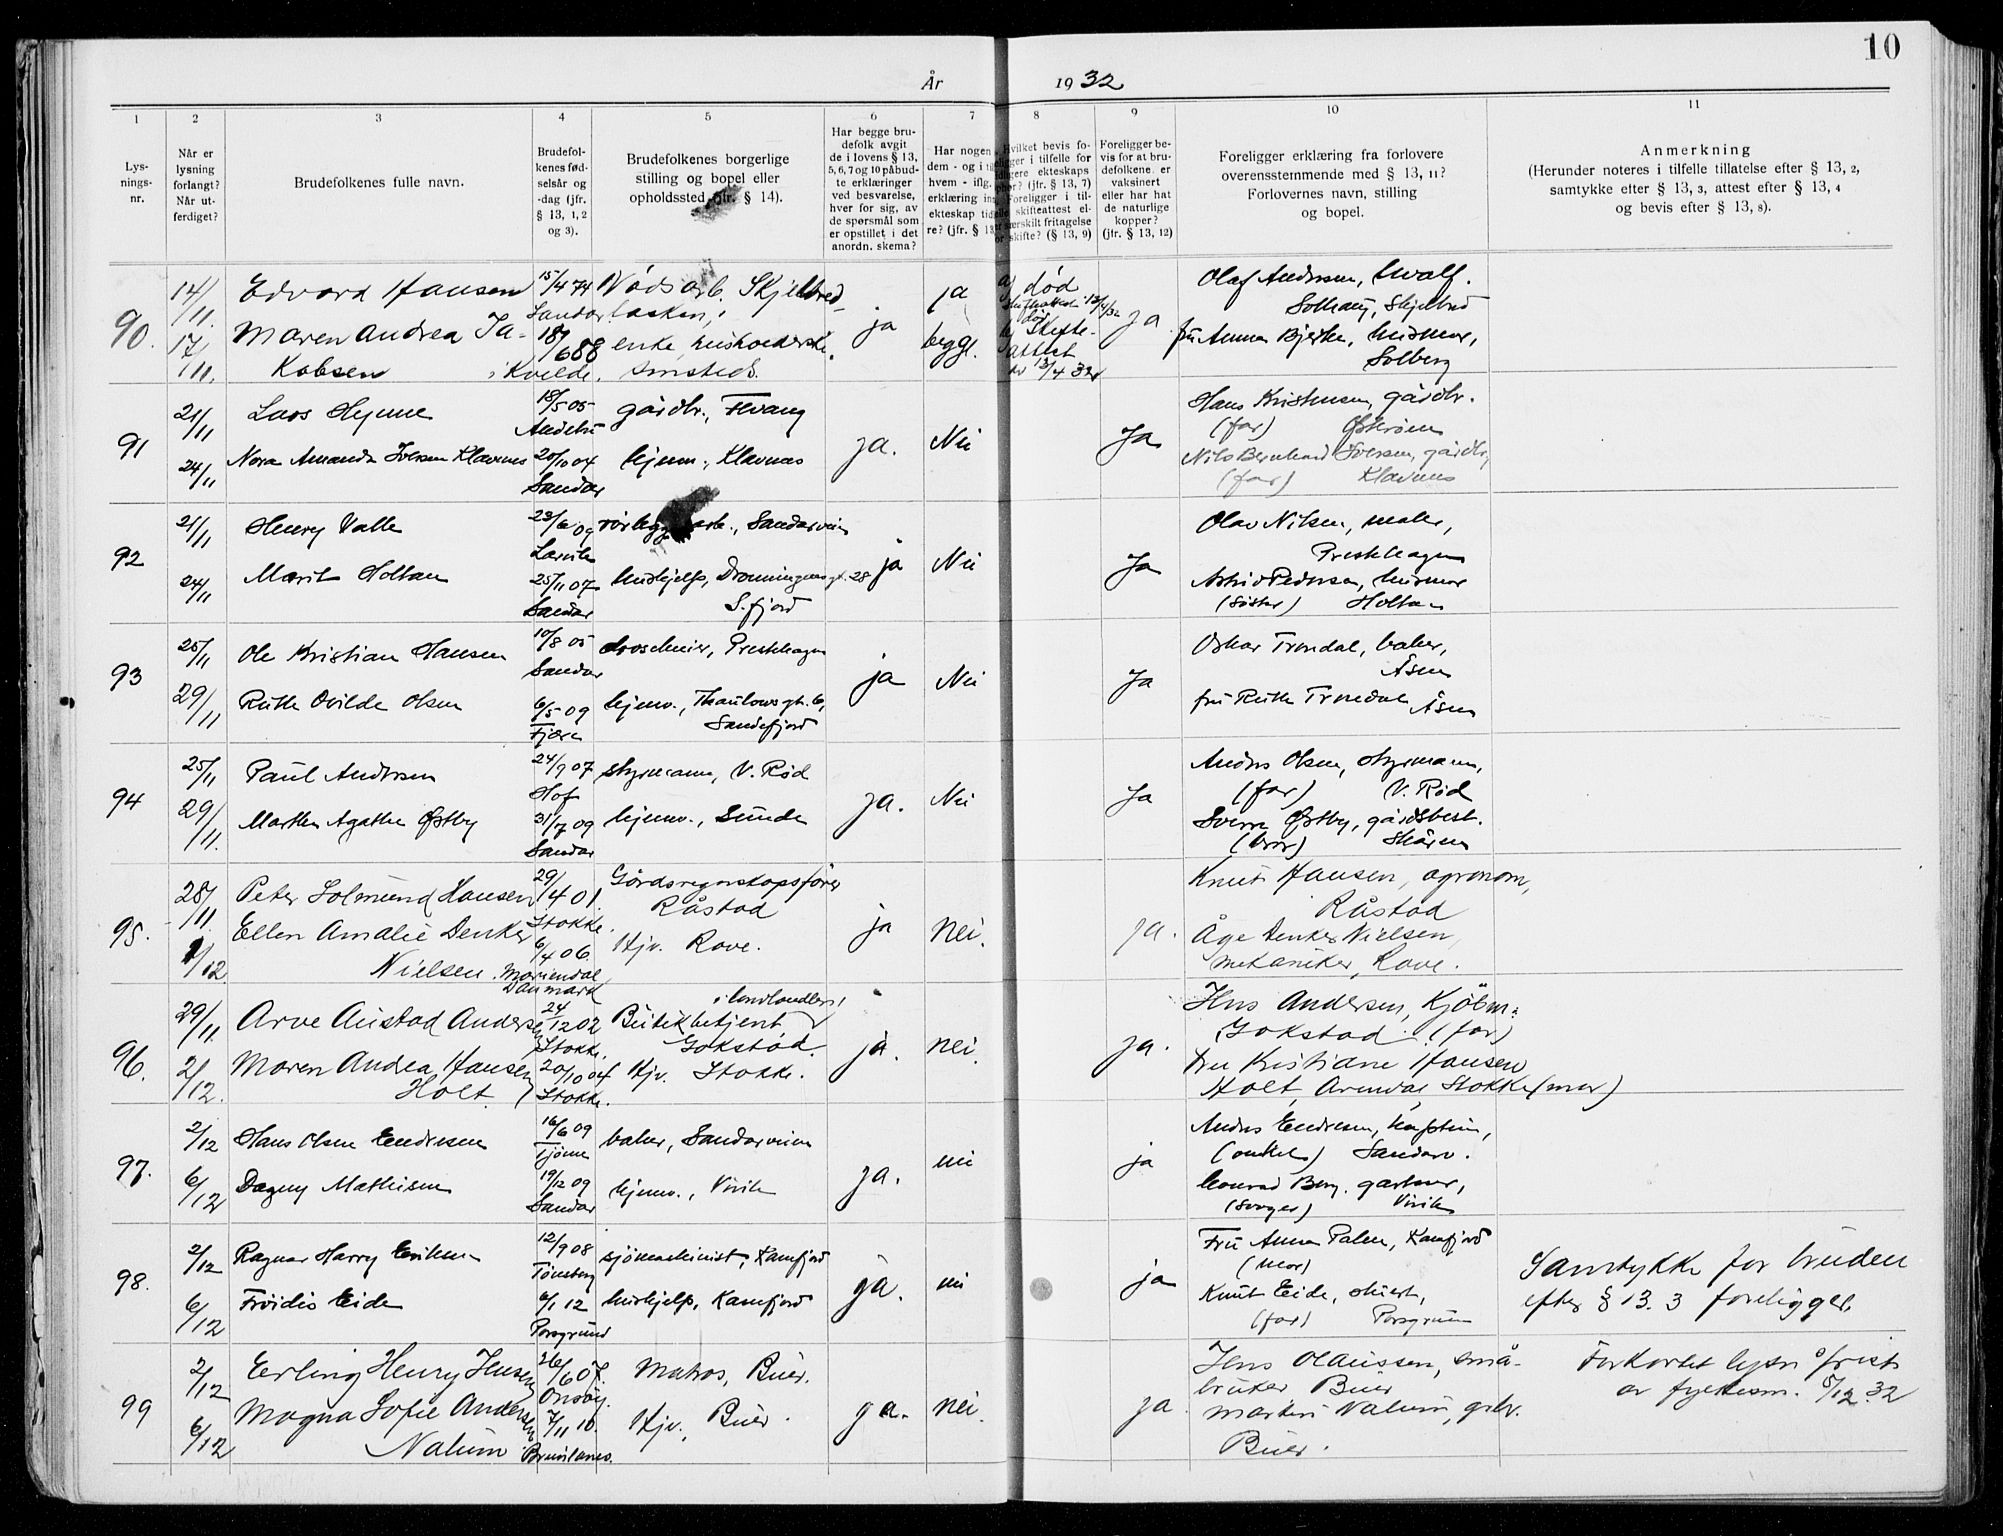 10
År 1932
1 2 3 4 5 6 7 8 9 10 11
Lys-
nings-
nr.
Når er
lysning
forlangt?
Når ut-
ferdiget?
Brudefolkenes fulle navn.
Brudefol-
kenes fød-
selsår og
-dag (jfr.
§ 13, 1, 2
og 3).
Brudefolkenes borgerlige
stilling og bopel eller
opholdssted (jfr. § 14).
Har begge bru-
defolk avgit
de i lovens § 13,
5, 6, 7 og 10 påbud-
te erklæringer
ved besvarelse,
hver for sig, av
de spørsmål som
er opstillet i det
anordn. skema?
Har nogen
dem - og i
hvem - iflg.
erklæring
ekteskap
re? (jfr. § 13
Hvilket bevis fo-
religger i tilfelle for
tidligere ekteskaps
ophør? (jfr. § 13, 7)
Foreligger i til-
felle skifteattest el-
særskilt fritagelse
for skifte? (§ 13, 9)
Foreligger be-
vis for at bru-
defolkene er
vaksinert
eller har hat
de naturlige
kopper?
(jfr. § 13, 12)
Foreligger erklæring fra forlovere
overensstemmende med § 13, 11?
Forlovernes navn, stilling
og bopel.
Anmerkning
(Herunder noteres i tilfelle tillatelse efter § 13, 2,
samtykke efter § 13, 3, attest efter § 13, 4
og bevis efter § 13, 8).
90.
14/11.
17/11.
Edvard Hansen
Maren Andrea Ja-
kobsen
15/4 74
Sandar
18/6 88
Kvelde.
Nødsarb. Skjelbred
enke, husholderske
smsteds.
ja
ja
begge.
a) død
b) Skifte-
attest
av 13/4 32
ja
Olaf Andersen,
Solhaug, Skjelbred
fru Anna Bjerke, husmor,
Solberg
91
21/11
24/11
Lars Hynne
Nora Amanda Iversen Klavnes
18/5 05
Andebu
20/10 04
Sandar
gårdbr., Fevang
hjemv., Klavnes
ja.
Nei
Ja
Hans Kristensen, gårdbr.
(far)
Nils Bernhard Iversen, gårdbr,
(far) Klavnes
92
21/11
24/11
Henry Valle
Marit Holtan
23/6 09
Larvik
25/11 07
Sandar
Sandarveien
hushjelp, Dronningensgt. 28
S.fjord
ja
Nei
Ja
Olav Nilsen, maler,
Presthagen
Astrid Pedersen, husmor
(søster) Holtan
93
25/11
29/11
Ole Kristian Hansen
Ruth Ovilde Olsen
10/8 05
Sandar
6/5 09
Fjære
droscheeier, Presthagen
hjemv., Thaulowsgt. 6,
Sandefjord
ja
Nei
Ja
Oskar Trondal, baker,
Åsen
fru Ruth Trondal, Åsen
94
25/11
29/11.
Paul Andersen
Marthe Agathe Østby
24/9 07
Hof
31/7 09
Sandar
styrmann, V. Rød
hjemv., Sunde
ja.
Nei
Ja
Anders Olsen, styrmann,
(far) V. Rød
Sverre Østby, gårdsbest.
(bror)
95.
28/11.
1/12.
Peter Solmund Hansen
Ellen Amalie Denker
Nielsen.
29/4 01.
Stokke.
6/4 06.
Mariendal
Danmark
Gårdsregnskapsfører
Råstad
Hjv. Rove.
ja
Nei.
ja.
Knut Hansen, agronom,
Råstad
Åge Denker Nielsen,
mekaniker, Rove.
96.
29/11.
2/12.
Arve Austad Andersen
Maren Andrea Hansen
Holt.
24/12 02
Stokke.
20/10 04
Stokke.
i landhandleri
Butikbetjent
Gokstad.
Hjv. Stokke.
ja.
nei.
ja.
Jens Andersen, Kjøbm.
Gokstad. (far)
fru Kristiane Hansen
Holt, Arendal Stokke (mor)
97.
2/12
6/12
Hans Olsen Endresen
Dagny Mathisen
16/6 09
Tjøme
19/12 09
Sandar
baker, Sandarveien
hjemv., Virik
ja.
nei
ja
Anders Endresen, kaptein,
(onkel) Sandarv.
Konrad Berg, gartner,
(svoger) Virik
98.
2/12
6/12
Ragnar Harry Eriksen
Frøidis Eide
12/9 08
Tønsberg
6/1 12
Porsgrund
sjømaskinist, Kamfjord
hushjelp, Kamfjord
ja.
nei
ja
Fru Anna Palm, Kamfjord
(mor)
Knut Eide,
(far) Porsgrunn
Samtykke for bruden
efter § 13.3 foreligger.
99
2/12
6/12
Erling Henry Jensen
Magna Sofie Andersen
Nalum
26/6 07.
Onsøy.
7/11 10.
Brunlanes.
Matros, Buer.
Hjv., Buer.
ja.
nei.
ja.
Jens Olaussen, små-
bruker, Buer
Martin Nalum, grbr.
Buer.
Forkortet lysn.sfrist
av fylkesm. 5/12 32